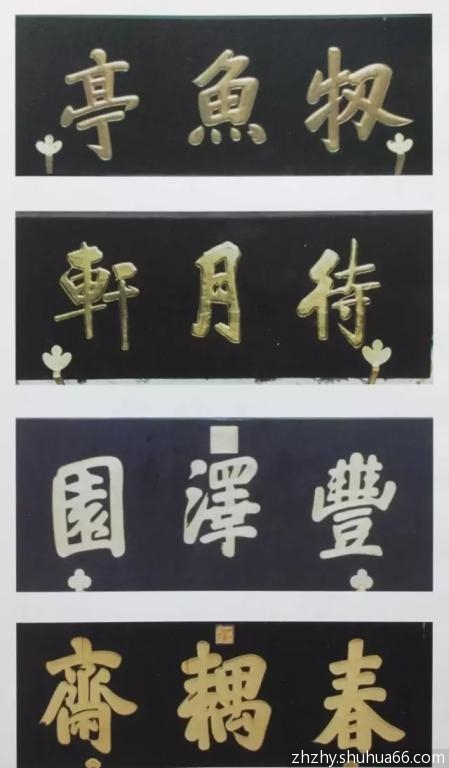 牣魚亭
待月軒
豐澤園
春耦齋
zhzhy.shuhua66.com